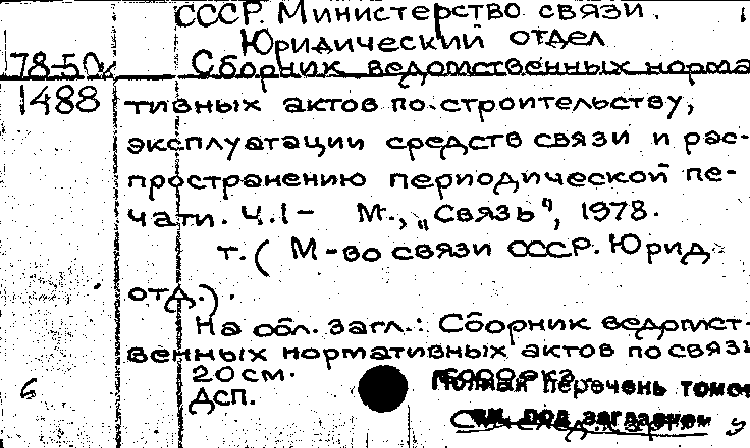 СССР. Министерство связи.
Юридический отдел
78-50
Сборник ведомственных норма
1488 тивных актов по строительству,
эксплуатации средств связи и рас-
пространению периодической пе-
чати. Ч.1 - М., „Связь", 1978.
т. ( М-во связи СССР. Юрид.
отд.).
На обл. загл.: Сборник ведомст-
венных нормативных актов по связи
20 см. 
6 ДСП. Полный перечень томов
см. под заглавием